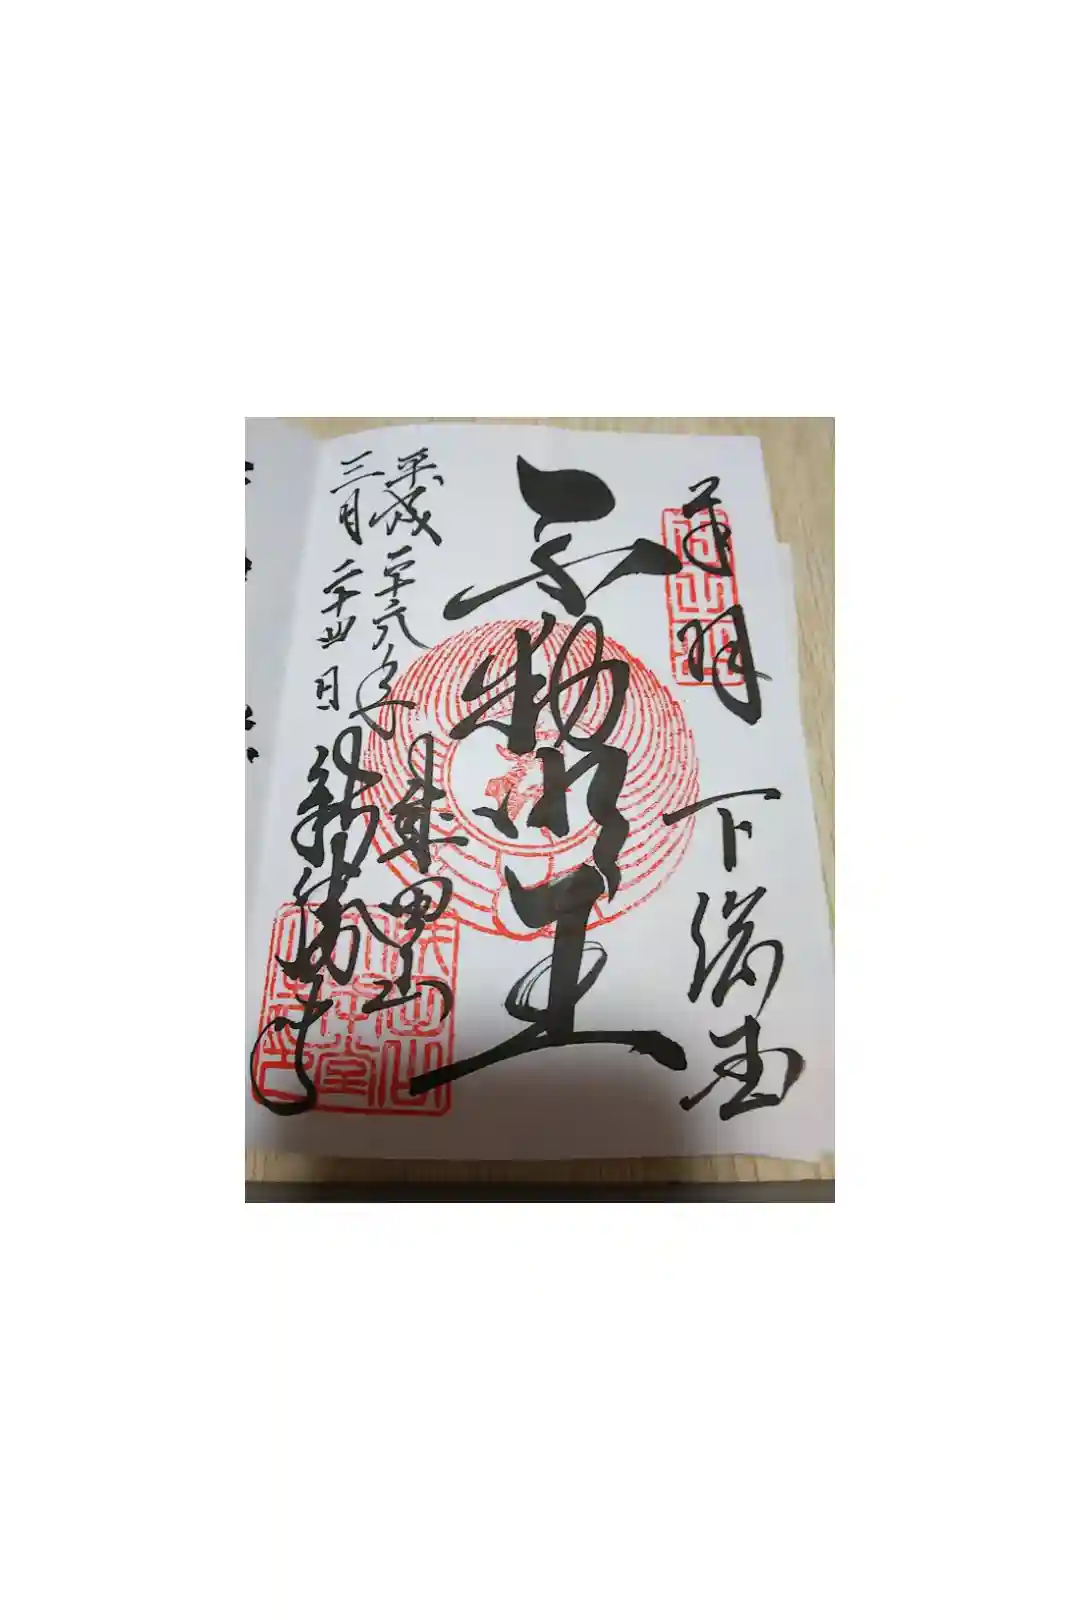 奉拝 下総国
不動明王
平成二十六年 成田山
三月二十四日 新勝寺